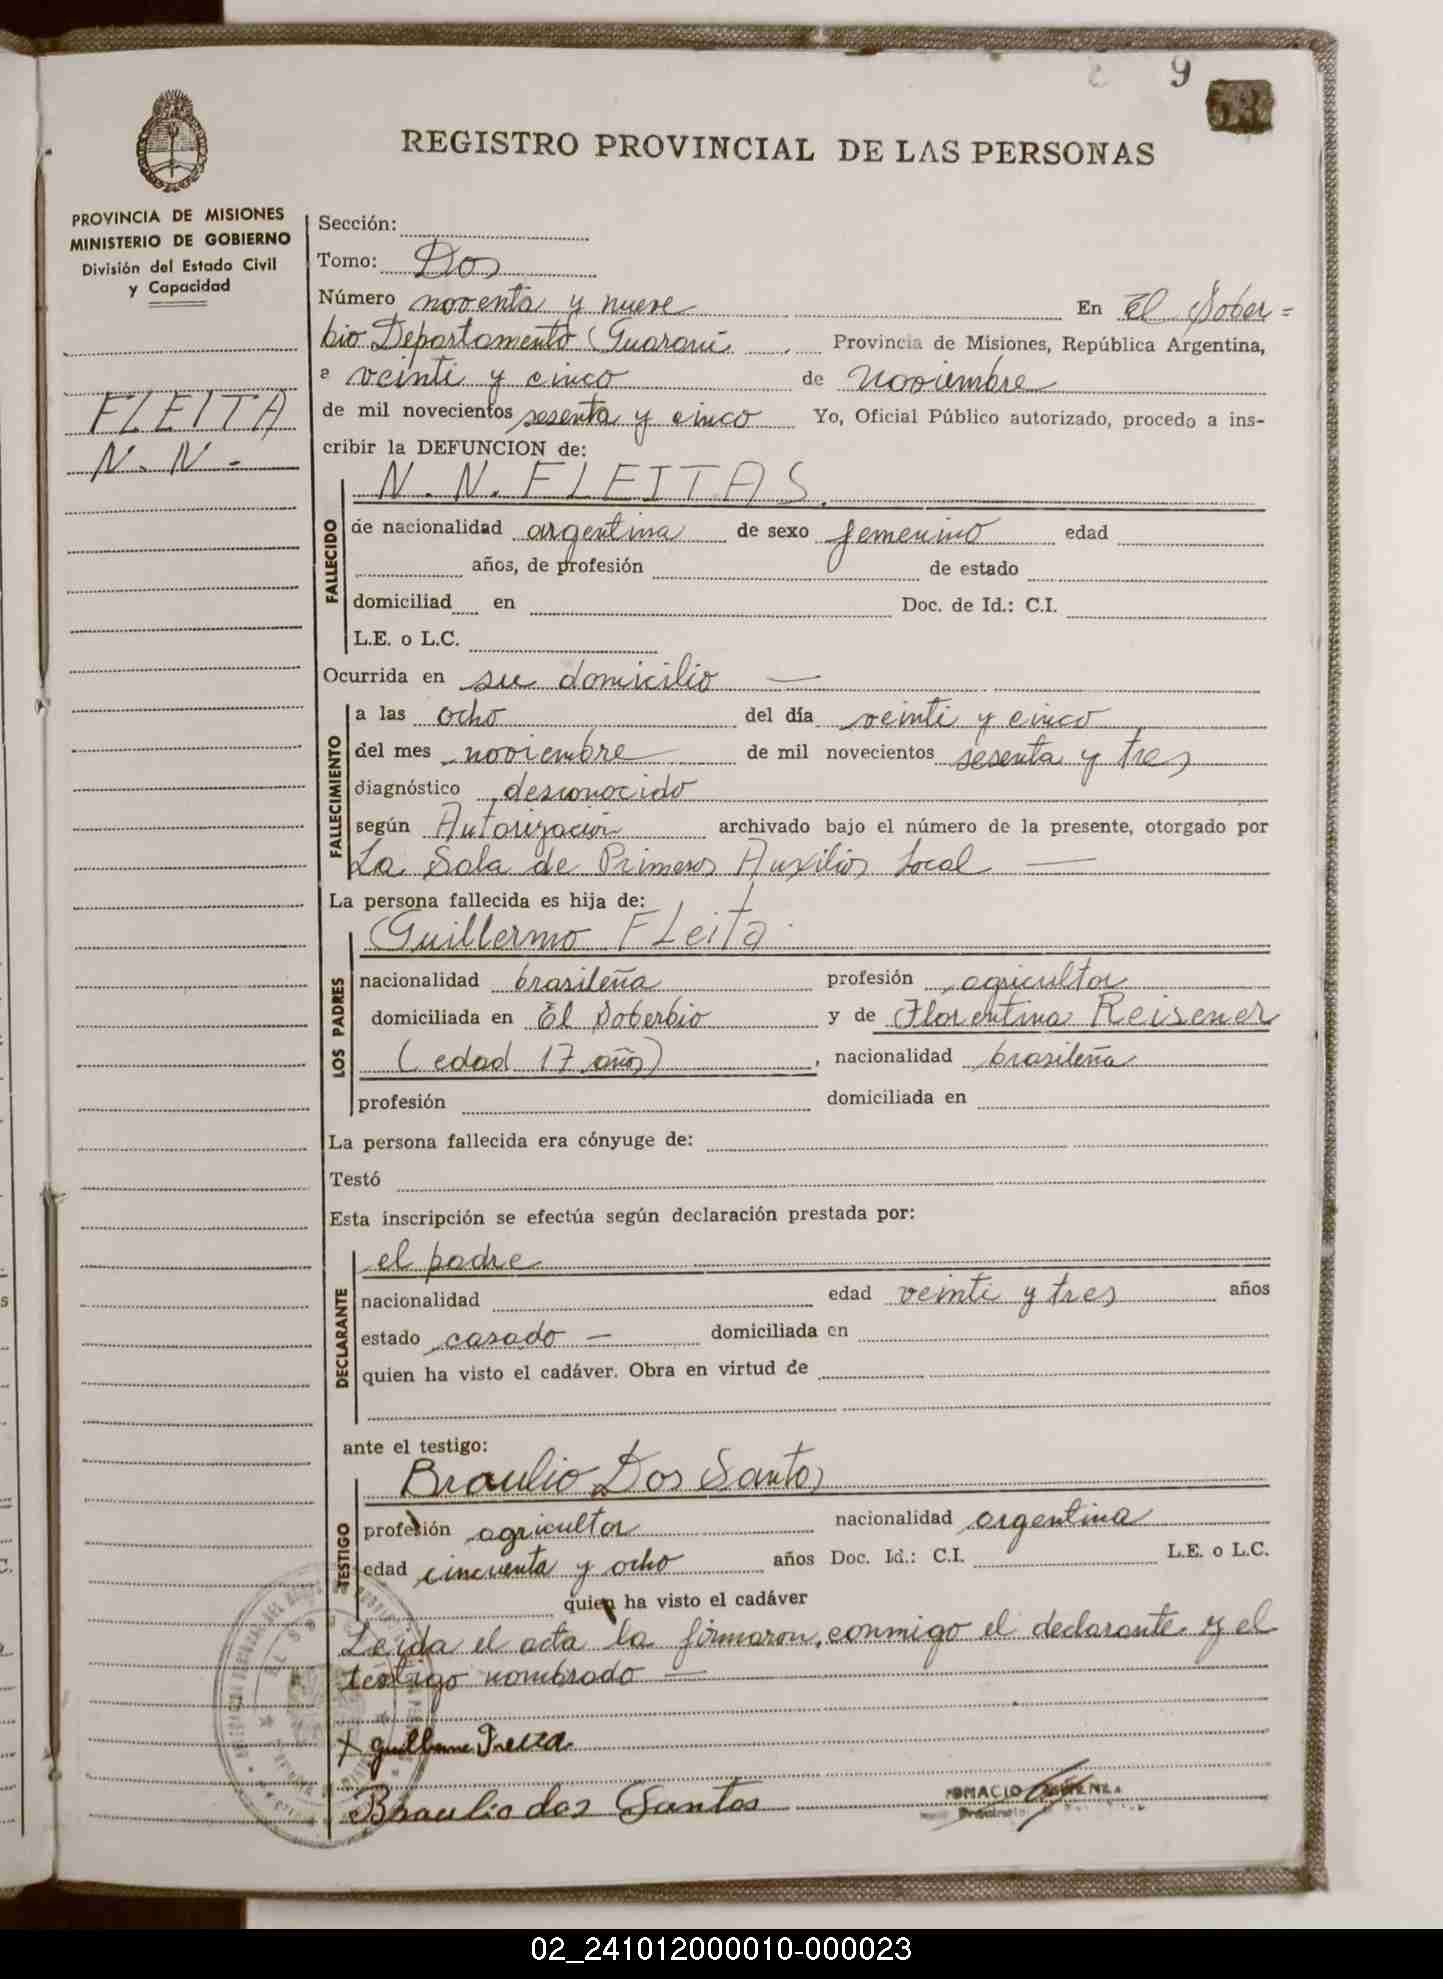 9
53
REGISTRO PROVINCIAL DE LAS PERSONAS
PROVINCIA DE MISIONES
MINISTERIO DE GOBIERNO
División del Estado Civil
y Capacidad
FLEITA
N. N -
Sección:
Tomo: Dos
Número noventa y nueve En El Sober=
bio Departamento Guaraní Provincia de Misiones, República Argentina,
a veinti y cinco de noviembre
de mil novecientos sesenta y cinco Yo, Oficial Público autorizado, procedo a ins-
cribir la DEFUNCION de:
N. N. FLEITAS.
FALLECIDO
de nacionalidad argentina de sexo femenino edad
años, de profesión de estado
domiciliad en Doc. de Id.: C.I.
L.E. o L.C.
Ocurrida en su domicilio —
FALLECIMIENTO
a las ocho del día veinti y cinco
del mes noviembre de mil novecientos sesenta y tres
diagnóstico desconocido
según Autorización archivado bajo el número de la presente, otorgado por
La Sala de Primeros Auxilios Local —
La persona fallecida es hija de:
LOS PADRES
Guillermo FLeita
nacionalidad brasileña profesión agricultor
domiciliada en El Soberbio y de Florentina Reisener
(edad 17 años), nacionalidad brasileña
profesión domiciliada en
La persona fallecida era cónyuge de:
Testó
Esta inscripción se efectúa según declaración prestada por:
DECLARANTE
el padre
nacionalidad edad veinti y tres años
estado casado — domiciliada en
quien ha visto el cadáver. Obra en virtud de
ante el testigo:
TESTIGO
Braulio Dos Santos
profesión agricultor nacionalidad argentina
edad cincuenta y ocho años Doc. Id.: C.I. L.E. o L.C.
quien ha visto el cadáver
Leida el acta la firmaron, conmigo el declarante y el
testigo nombrado —
Braulio dos Santos
02_241012000010-000023